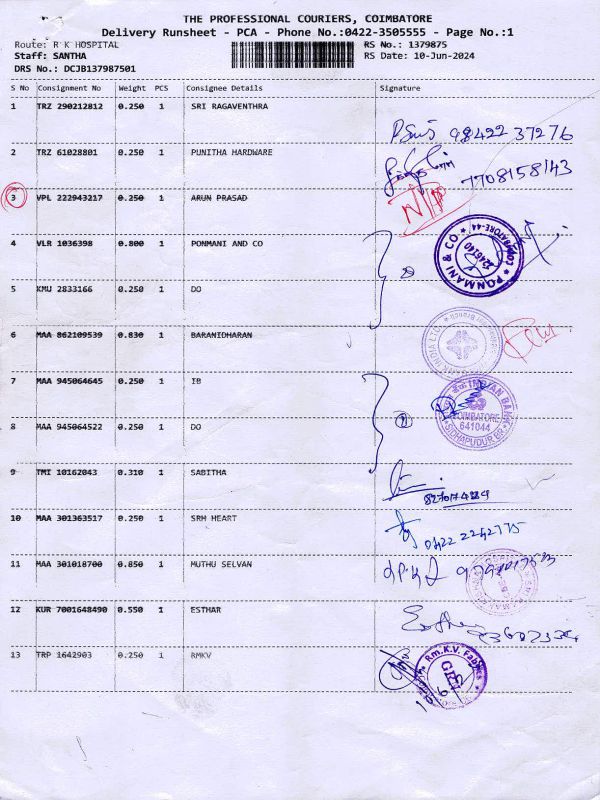 THE PROFESSIONAL COURIERS, COIMBATORE
Delivery Runsheet - PCA - Phone No.:0422-3505555 - Page No.:1
Route: R K HOSPITAL RS No.: 1379875
Staff: SANTHA RS Date: 10-Jun-2024
DRS No.: DCJB137987501
S No Consignment No Weight PCS Consignee Details Signature
1 TRZ 290212812 0.250 1 SRI RAGAVENTHRA
98422 37276
2 TRZ 61028801 0.250 1 PUNITHA HARDWARE
7708158143
3 VPL 222943217 0.250 1 ARUN PRASAD
4 VLR 1036398 0.800 1 PONMANI AND CO
PONMANI & CO
5 KMU 2833166 0.250 1 DO
6 MAA 862109539 0.830 1 BARANIDHARAN
7 MAA 945064645 0.250 1 IB
INDIAN BANK
COIMBATORE
641044
SIDHAPUDUR BR.
8 MAA 945064522 0.250 1 DO
9 TMT 10162043 0.310 1 SABITHA
10 MAA 301363517 0.250 1 SRM HEART
0422 2242775
11 MAA 301018700 0.850 1 MUTHU SELVAN
12 KUR 7001648490 0.550 1 ESTHAR
Esther
13 TRP 1642903 0.250 1 RMKV
Rm.K.V. Fabrics